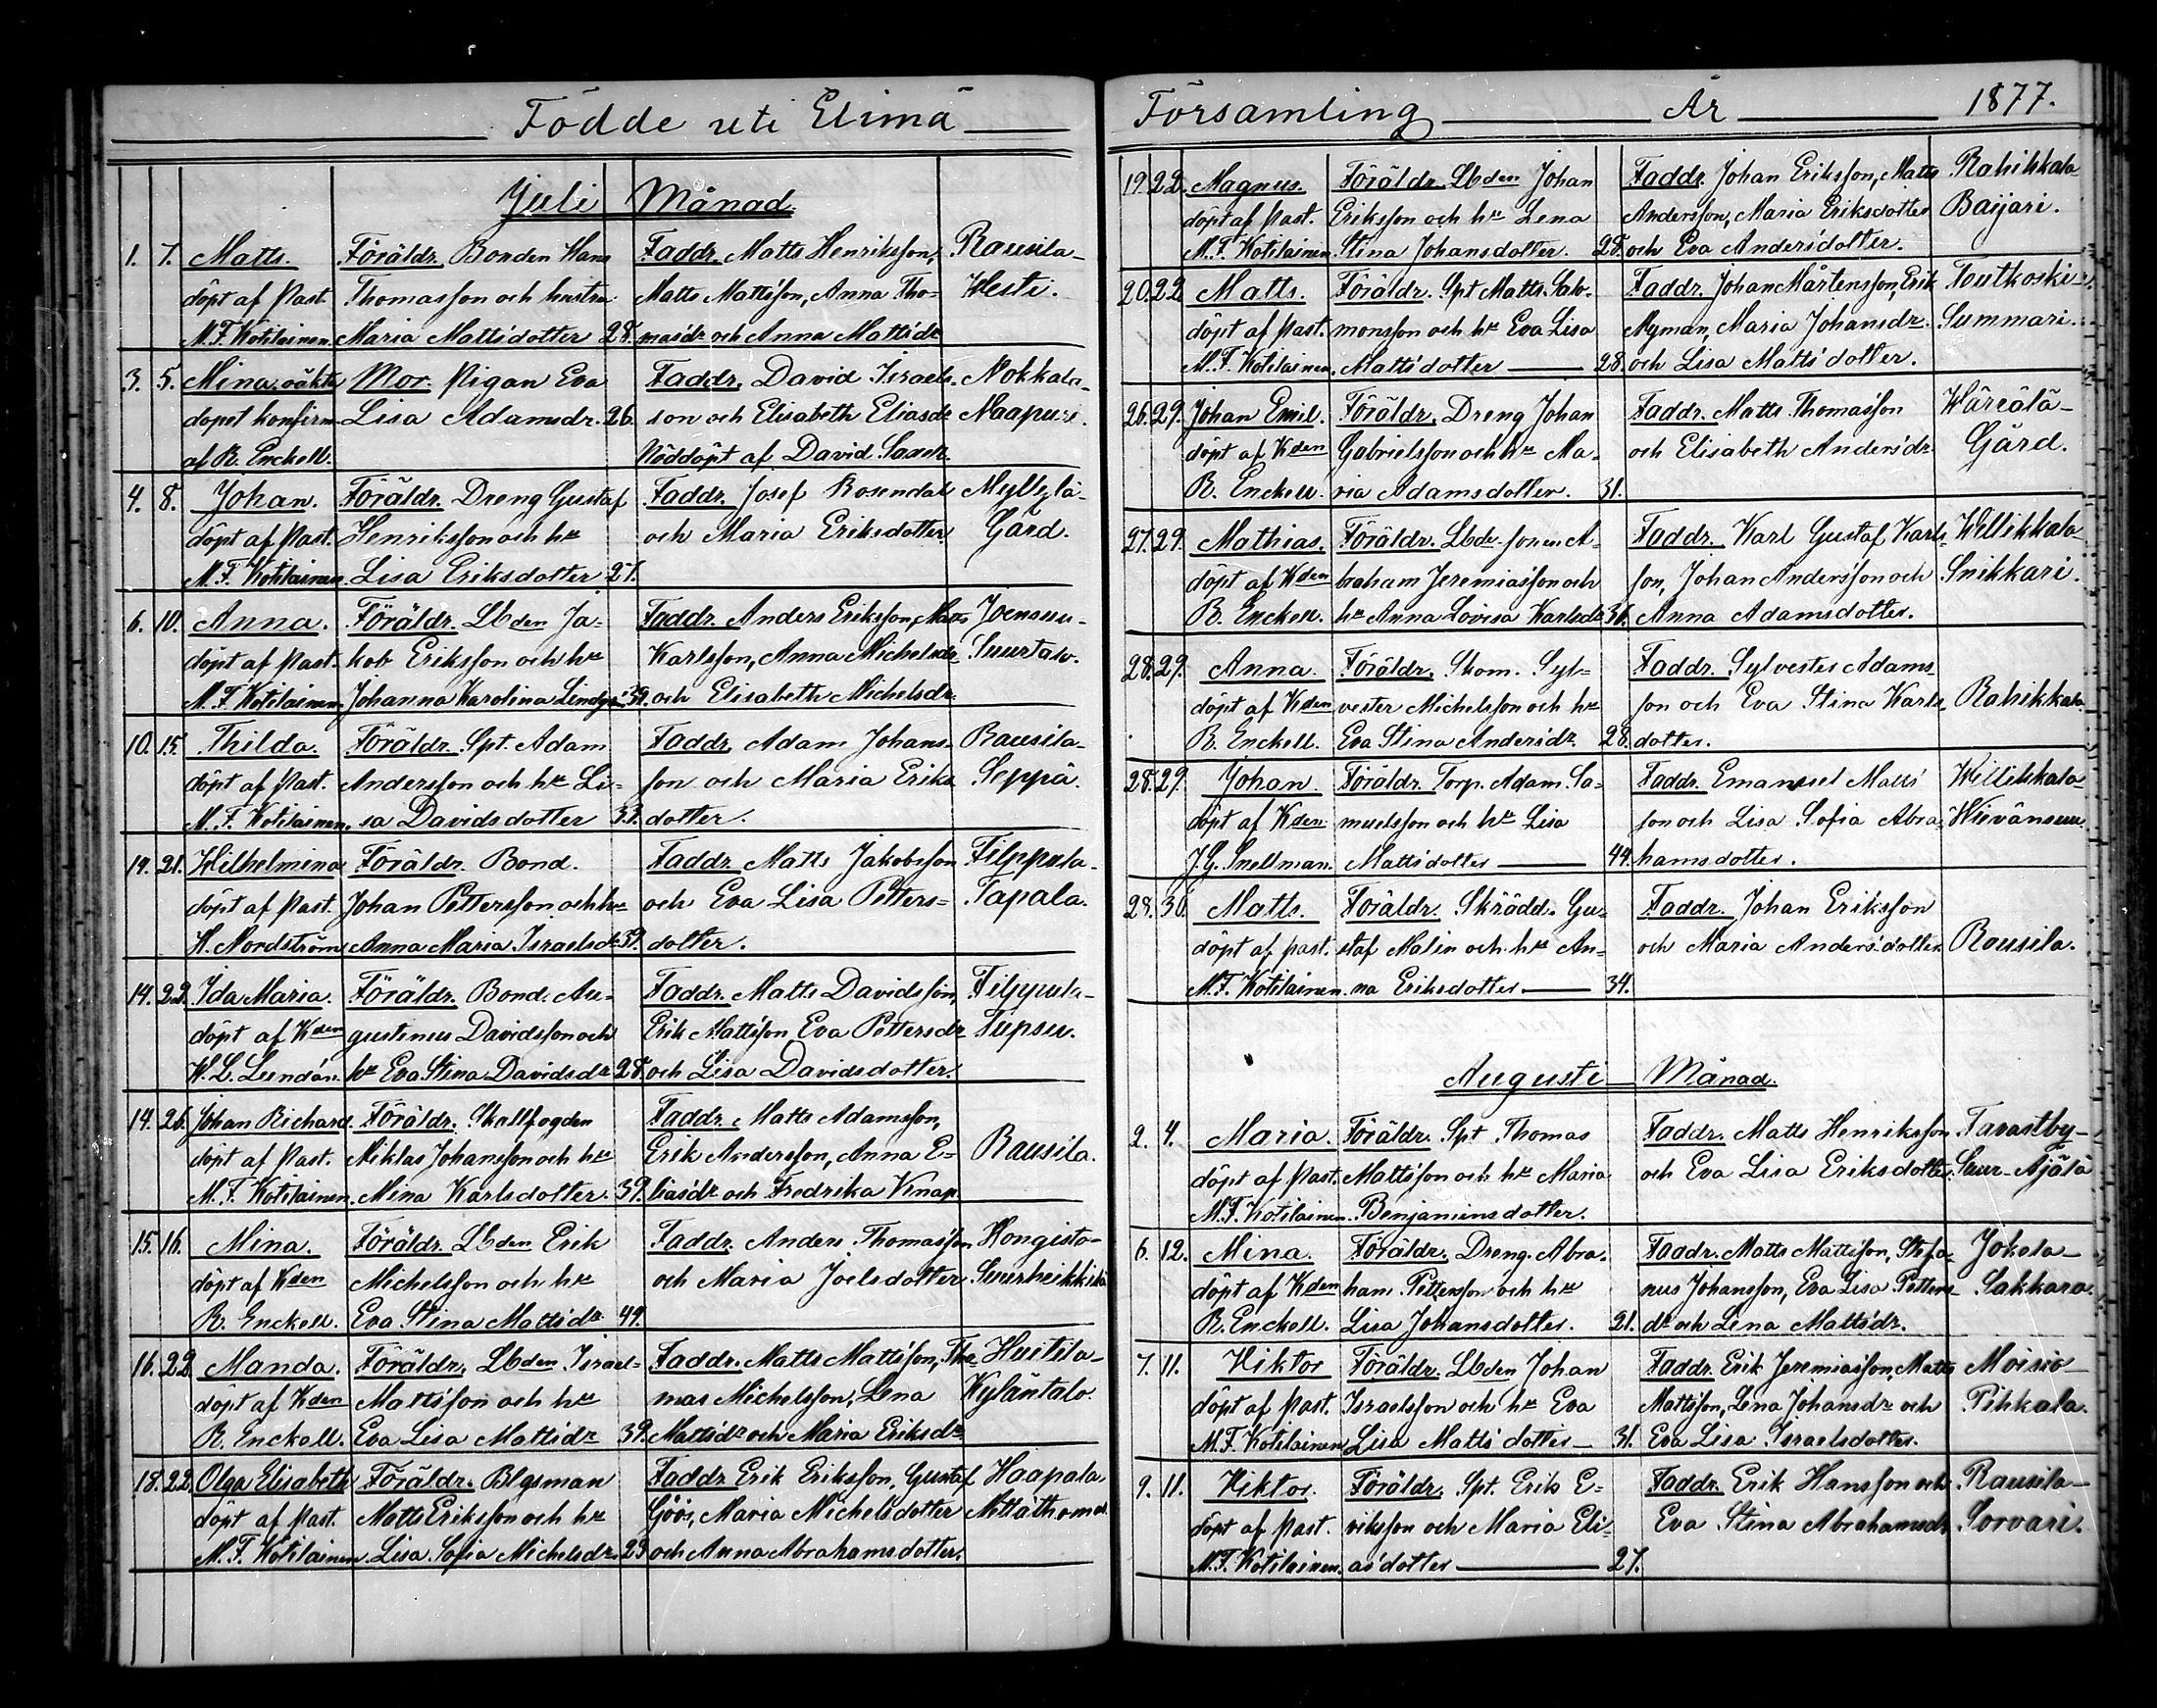 Födde uti Elimä
Juli Månad.
1. 7. Matts. Föräldr. Bonden Hans Faddr. Matts Henriksson, Rausila-
döpt af Past. Thomasson och hustru Matts Mattsson, Anna Tho- Westi.
M. F. Kotilainen. Maria Mattsdotter 28. masdr och Anna Mattsdr
3. 5. Mina, oäkta Mor. Pigan Eva Faddr. David Israels- Nokkala-
dopet konfirm. Lisa Adamsdr. 26. son och Elisabeth Eliasdr Naapuri.
af R. Enckell. Nöddöpt af David
4. 8. Johan. Föräldr. Dreng Gustaf Faddr. Josef Rosendal Myllylä-
döpt af Past. Henriksson och hu och Maria Eriksdotter. Gård.
M. F. Kotilainen. Lisa Eriksdotter 27.
6. 10. Anna. Föräldr. Lbden Ja- Faddr. Anders Eriksson, Matts Joensuu-
döpt af Past. kob Eriksson och hu Karlsson, Anna Michelsdr Suurtalo.
M. F. Kotilainen. Johanna Karolina 39. och Elisabeth Michelsdr.
10. 15. Thilda. Föräldr. Spt. Adam Faddr. Adam Johans- Rausila-
döpt af Past. Andersson och hu Li- son och Maria Eriks Seppä.
M. F. Kotilainen. sa Davidsdotter 33. dotter.
14. 21. Wilhelmina Föräldr. Bond. Faddr. Matts Jakobsson Filppula-
döpt af Past. Johan Pettersson och hu och Eva Lisa Petters- Tapala.
H. Nordström Anna Maria Israelsdr 39. dotter.
14. 22. Ida Maria. Föräldr. Bond. Au- Faddr. Matts Davidsson, Filppula-
döpt af Kden gustinus Davidsson och Erik Mattsson, Eva Pettersdr Tupsu.
W. L. Lundán. hu Eva Stina Davidsdr 28. och Lisa Davidsdotter.
14. 26. Johan Richard. Föräldr. Skallfogden Faddr. Matts Adamsson,
döpt af Past. Niklas Johansson och hu Erik Andersson, Anna E- Rausila.
M. F. Kotilainen. Mina Karlsdotter. 39. liasdr och Fredrika Knap
15. 16. Mina. Föräldr. Lbden Erik Faddr. Anders Thomasson Hongisto-
döpt af Kden Michelsson och hu och Maria Joelsdotter Suurheikkilä
R. Enckell. Eva Stina Mattsdr 44.
16. 22. Manda. Föräldr. Lbden Israel- Faddr. Matts Mattsson, Tho- Huitila-
döpt af Kden Mattsson och hu mas Michelsson, Lena Kyläntalo.
R. Enckell. Eva Lisa Mattsdr 39. Mattsdr och Maria Eriksdr
18. 22. Olga Elisabeth Föräldr. Blgsman Faddr. Erik Eriksson, Gustaf Haapala
döpt af Past. Matts Eriksson och hu Göös, Maria Michelsdotter
M. F. Kotilainen. Lisa Sofia Michelsdr. 23 och Anna Abrahamsdotter.
Församling År 1877.
19. 22. Magnus. Föräldr. Lbden Johan Faddr. Johan Eriksson, Matts Rahikkala
döpt af Past. Eriksson och hu Lena Andersson, Maria Eriksdotter Baijari.
M. F. Kotilainen. Stina Johansdotter. 28. och Eva Andersdotter.
20. 22. Matts. Föräldr. Spt Matts Salo- Faddr. Johan Mårtensson, Erik Toutkoski-
döpt af Past. monsson och hu Eva Lisa Nyman, Maria Johansdr. Summari.
M. F. Kotilainen. Mattsdotter 28. och Lisa Mattsdotter.
26. 29. Johan Emil. Föräldr. Dreng Johan Faddr. Matts Thomasson Wäreälä-
döpt af Kden Gabrielsson och hu Ma- och Elisabeth Andersdr. Gård.
R. Enckell. ria Adamsdotter. 31.
27. 29. Mathias. Föräldr. Lbde-sonen A- Faddr. Karl Gustaf Karls- Willikkala-
döpt af Kden braham Jeremiasson och son, Johan Andersson och Snikkari.
R. Enckell. hu Anna Lovisa Karlsdr 36. Anna Adamsdotter.
28. 29. Anna. Föräldr. Skom. Syl- Faddr. Sylvester Adams-
döpt af Kden vester Michelsson och hu son och Eva Stina Karls- Rahikkala.
R. Enckell. Eva Stina Andersdr. 28. dotter.
28. 29. Johan. Föräldr. Torp. Adam Sa- Faddr. Emanuel Matts- Willikkala-
döpt af Kden muelsson och hu Lisa son och Lisa Sofia Abra- Hievänsuu.
J. G. Snellman. Mattsdotter 44. hamsdotter.
28. 30. Matts. Föräldr. Skrädd. Gu- Faddr. Johan Eriksson
döpt af past. staf Malin och hu An- och Maria Andersdotter. Rausila.
M. F. Kotilainen. na Eriksdotter 34.
Augusti Månad.
2. 4. Maria. Föräldr. Spt Thomas Faddr. Matts Henriksson Tavastby-
döpt af Past. Mattsson och hu Maria och Eva Lisa Eriksdotter. Suur-Ajälä
M. F. Kotilainen. Benjaminsdotter.
6. 12. Mina. Föräldr. Dreng. Abra- Faddr. Matts Mattsson, Stefa- Jokela-
döpt af Kden ham Pettersson och hu nus Johansson, Eva Lisa Petters- Sakkara.
R. Enckell. Lisa Johansdotter. 21. dr och Lena Mattsdr.
7. 11. Viktor Föräldr. Lbden Johan Faddr. Erik Jeremiasson, Matts Moisio-
döpt af past. Israelsson och hu Eva Mattsson, Lena Johansdr och Pihkala.
M. F. Kotilainen Lisa Mattsdotter 31. Eva Lisa Israelsdotter.
9. 11. Viktor. Föräldr. Spt. Erik E- Faddr. Erik Hansson och Rausila-
döpt af past. riksson och Maria Eli- Eva Stina Abrahamsdr Sorvari.
M. F. Kotilainen. asdotter 27.